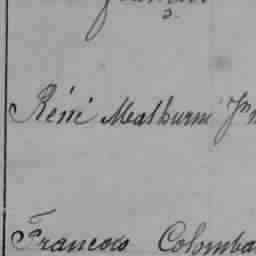 Réné Malburné Jn
Francois Colomba